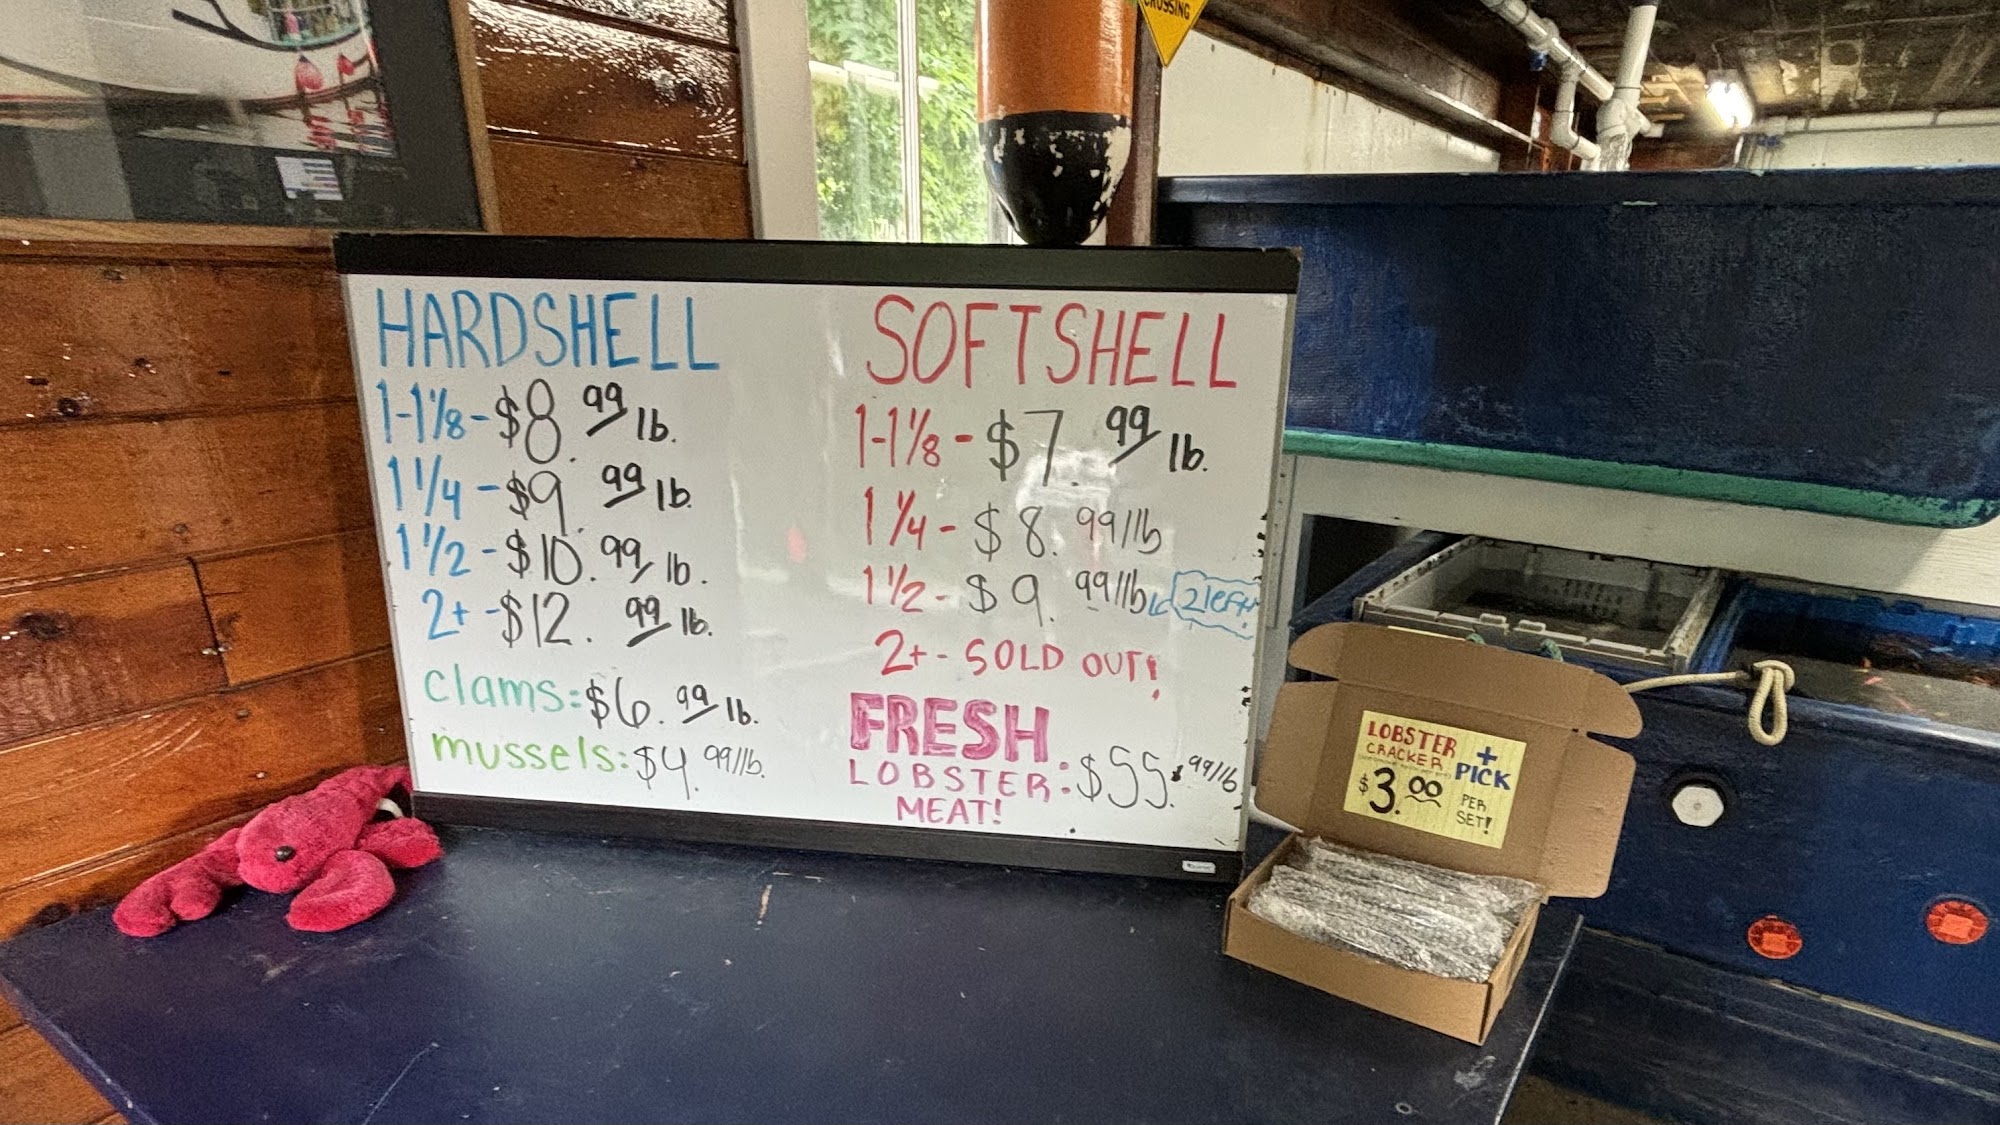 CROSSING
HARDSHELL
1-1 1/8 - $8.99/lb.
1 1/4 - $9.99/lb.
1 1/2 - $10.99/lb.
2+ - $12.99/lb.
clams: $6.99/lb.
mussels: $4.99/lb.
SOFTSHELL
1-1 1/8 - $7.99/lb.
1 1/4 - $8.99/lb
1 1/2 - $9.99/lb 2 left!
2+ - SOLD OUT!
FRESH
LOBSTER: $55.99/lb
MEAT!
LOBSTER
CRACKER
+ PICK
$3.00
PER
SET!